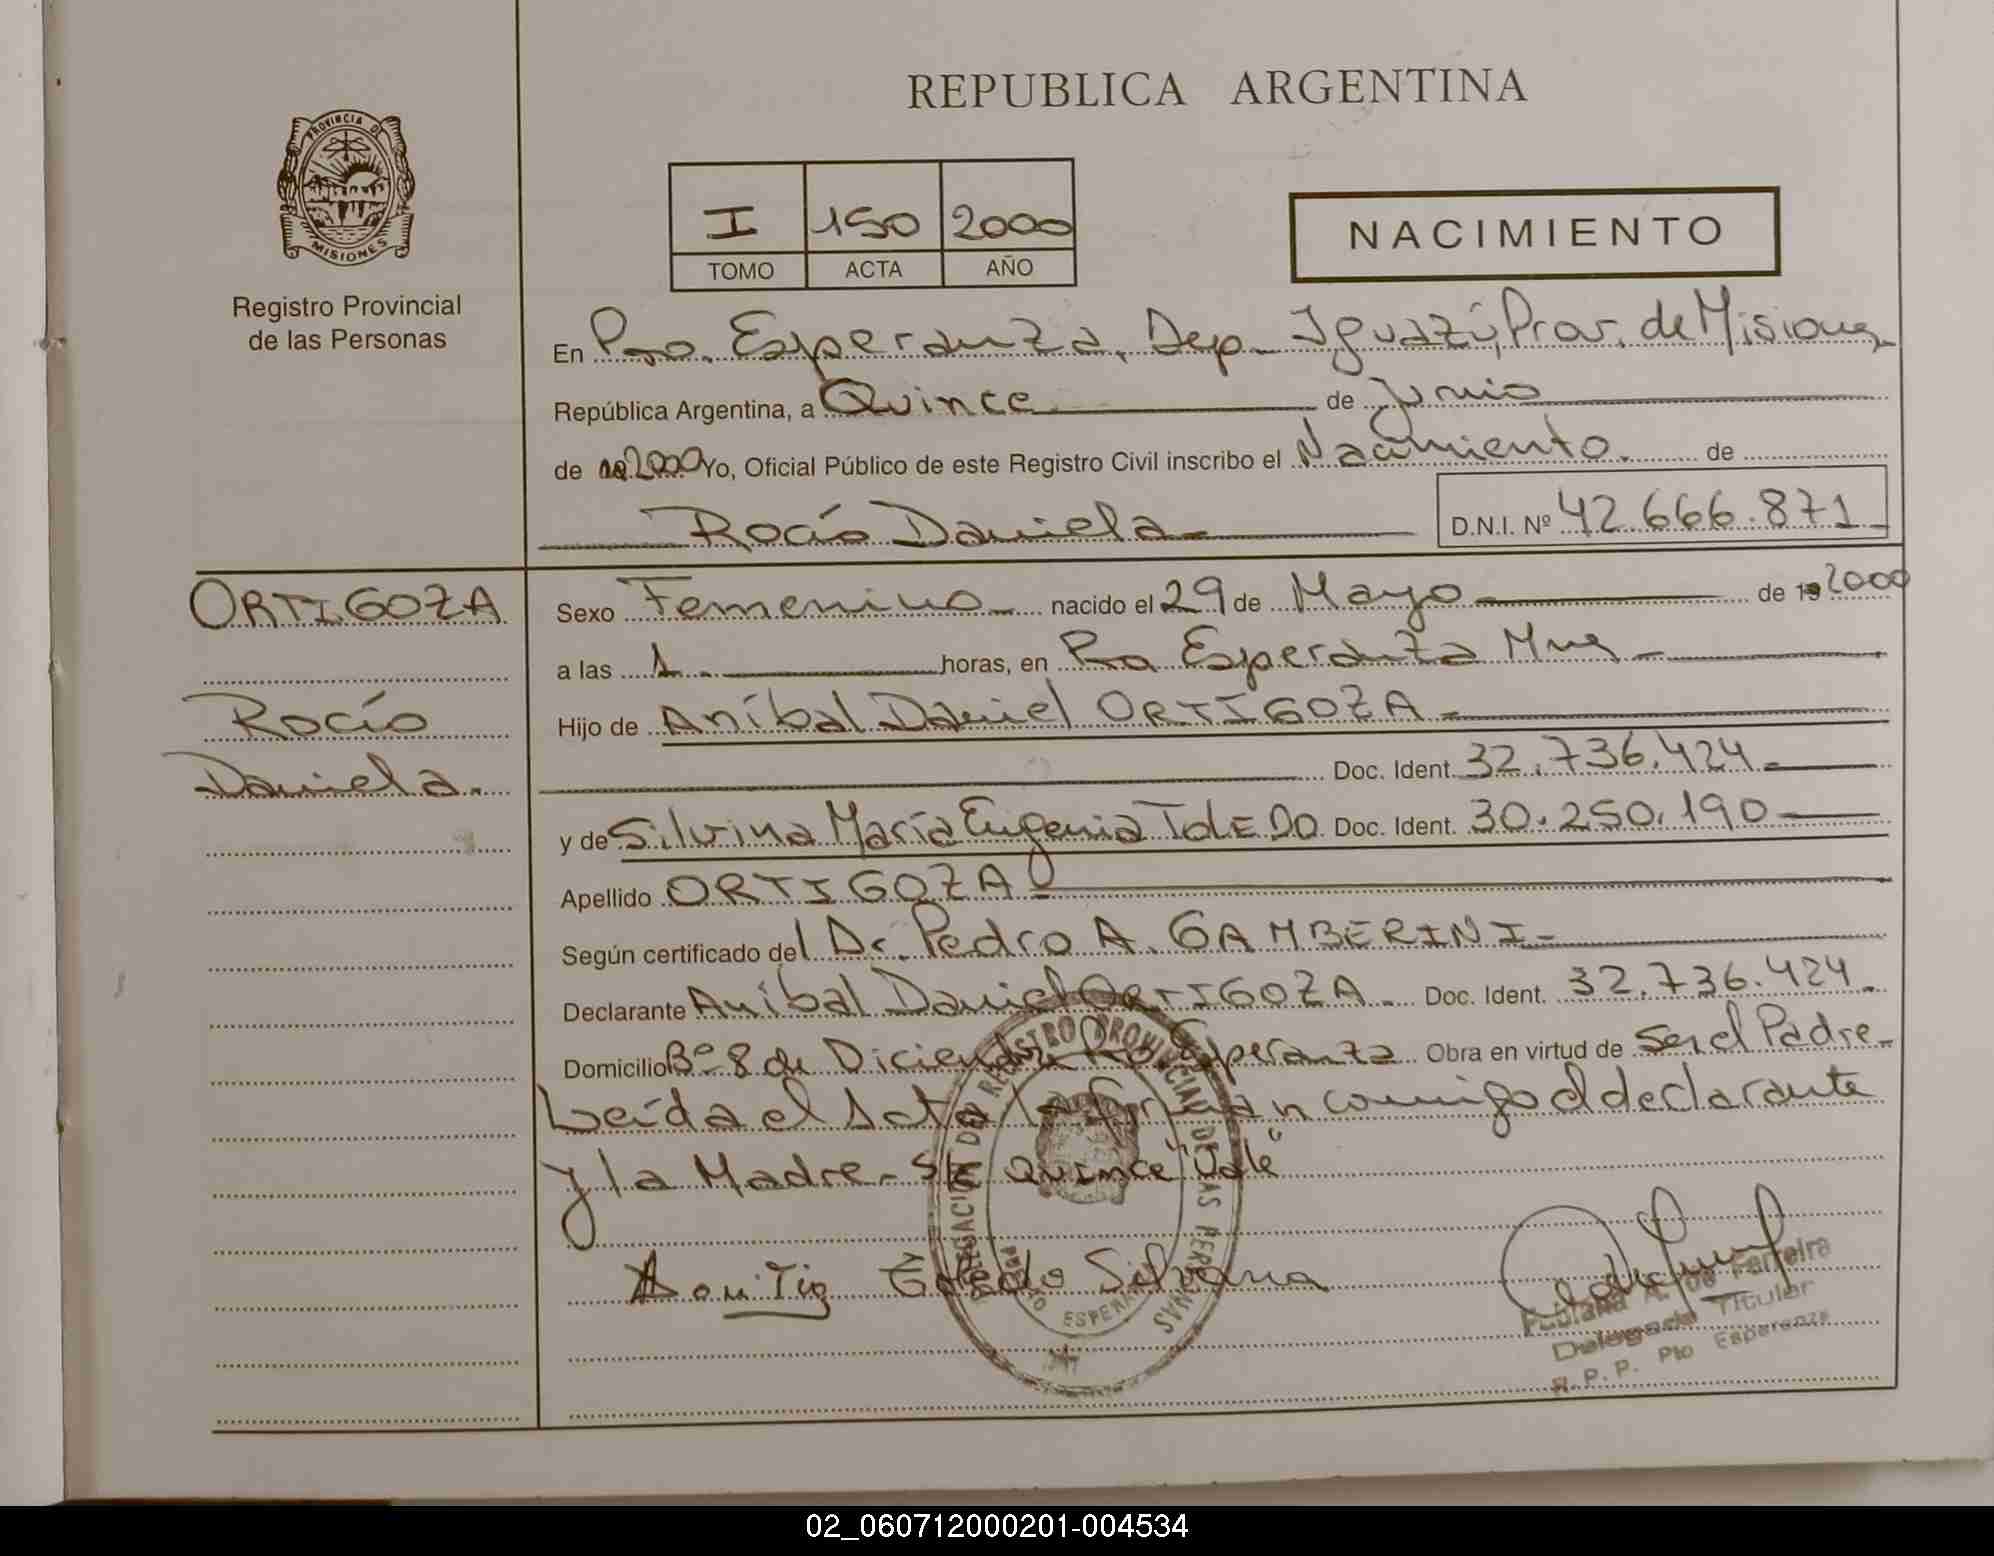 REPUBLICA ARGENTINA
PROVINCIA DE
MISIONES
Registro Provincial
de las Personas
I 150 2000
TOMO ACTA AÑO
NACIMIENTO
En Pto. Esperanza, Dep. Iguazú, Prov. de Misiones
República Argentina, a Quince de Junio
de 2000 Yo, Oficial Público de este Registro Civil inscribo el Nacimiento. de
Rocío Daniela D.N.I. Nº 42.666.871
ORTIGOZA
Rocío
Daniela.
Sexo Femenino nacido el 29 de Mayo de 19 2000
a las 1. horas, en Pto Esperanza Mnes
Hijo de Aníbal Daniel ORTIGOZA
Doc. Ident. 32.736.424
y de Silvina María Eugenia TOLEDO. Doc. Ident. 30.250.190
Apellido ORTIGOZA
Según certificado del Dr. Pedro A. GAMBERINI
Declarante Aníbal Daniel ORTIGOZA. Doc. Ident. 32.736.424.
Domicilio Bº 8 de Diciembre Pto Esperanza Obra en virtud de Ser el Padre
Leída el Acta la firman conmigo el declarante
y la Madre. S/R Quince "Vale"
Toledo Silvana
DELEGACION DEL REGISTRO PROVINCIAL DE LAS PERSONAS
PUERTO ESPERANZA
A. de Ferreira
Delegada Titular
R. P. P. Pto Esperanza
02_060712000201-004534